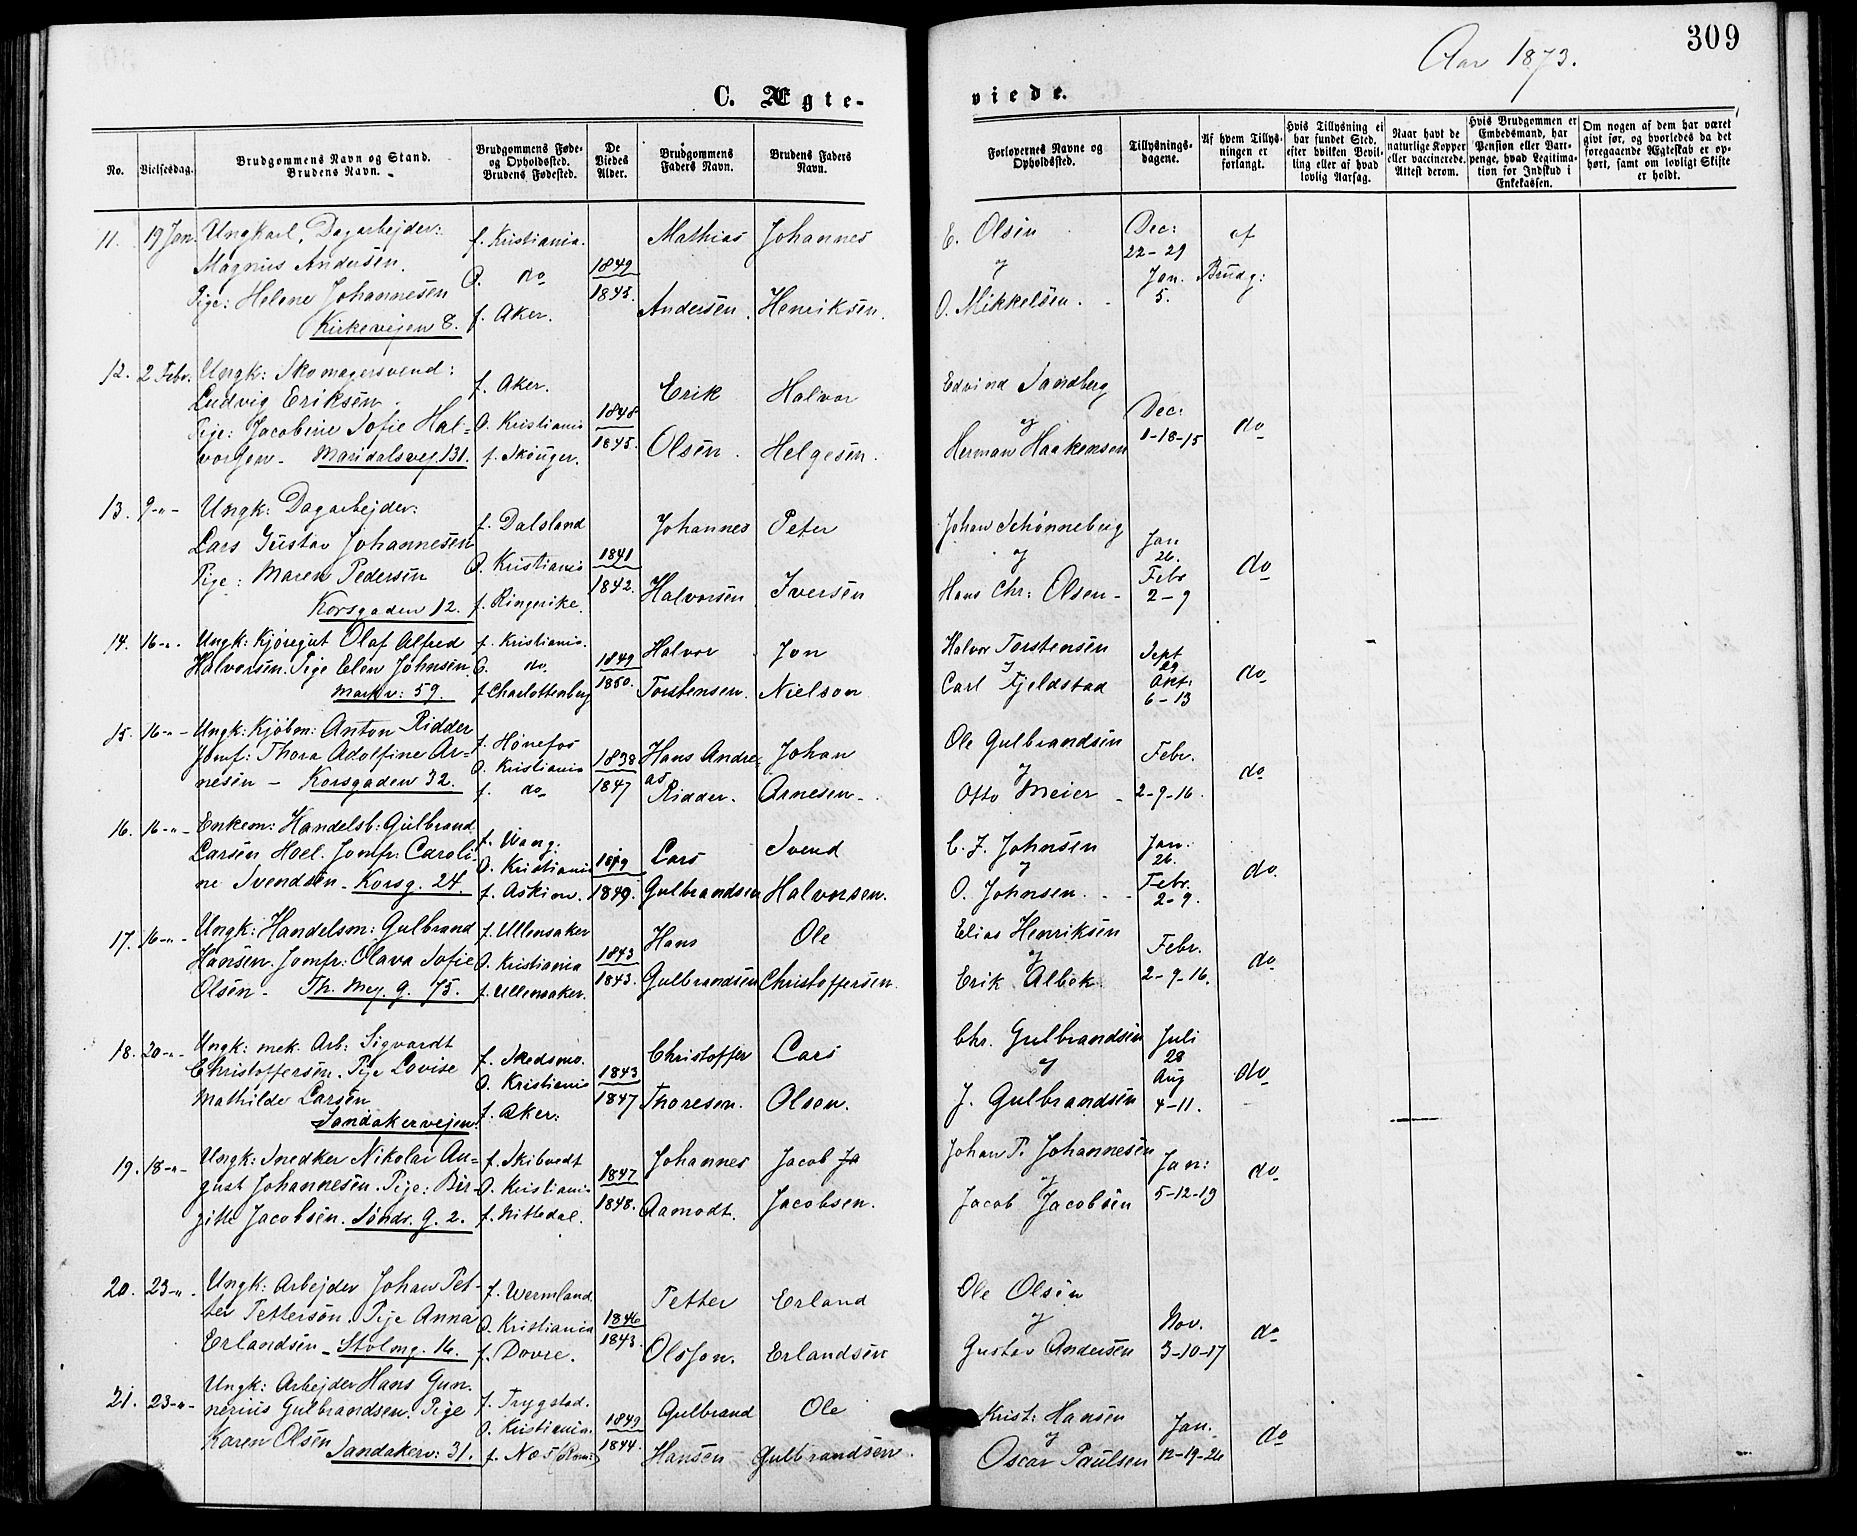 309
Aar 1873.
C. Ægte-
viede.
No.
Vielsesdag.
Brudgommens Navn og Stand.
Brudens Navn.
Brudgommens Føde-
og Opholdssted.
Brudens Fødested.
De
Viedes
Alder.
Brudgommens
Faders Navn.
Brudens Faders
Navn.
Forlovernes Navne og
Opholdssted.
Tillysnings-
dagene.
Af hvem Tillys-
ningen er
forlangt.
Hvis Tillysning ei
har fundet Sted,
efter hvilken Bevil-
ling eller af hvad
lovlig Aarsag.
Naar havt de
naturlige Kopper
eller vaccinerede.
Attest derom.
Hvis Brudgommen er
Embedsmand, har
Pension eller Vart-
penge, hvad Legitima-
tion for Indskud i
Enkekassen.
Om nogen af dem har været
givt før, og hvorledes da det
foregaaende Ægteskab er op-
hørt, samt om lovligt Skifte
er holdt.
11. 19 Jan. Ungkarl, Dagarbejder:
Magnus Andersen.
Pige: Helene Johannesen
Kirkevejen 8.
f. Kristiania.
O. do
f. Aker.
1849
1845.
Mathias
Andersen.
Johannes
Henriksen.
E. Olsen
og
O. Mikkelsen.
Dec:
22-29
Jan.
5.
af
Brudg:
12. 2 Febr. Ungk: Skomagersvend:
Ludvig Eriksen.
Pige: Jacobine Sofie Hal-
vorsen - Maridalsvej. 131.
f. Aker.
O. Kristiania
f. Skouger.
1848
1845.
Erik
Olsen.
Halvor
Helgesen.
Edvind Sandberg
og
Herman Haakensen
Dec:
1-18-15
do
13. 9-"- Ungk: Dagarbejder:
Lars Gustav Johannesen
Pige: Maren Pedersen
Korsgaden 12.
f. Dalsland
O. Kristiania
f. Ringerike.
1841
1842.
Johannes
Halvorsen
Peter
Iversen
Johan Schønneberg
og
Hans Chr: Olsen -
Jan
26.
Febr
2-9
do
14. 16-". Ungk: Kjøregut Olaf Alfred
Halvorsen. Pige Elen Johnsen
Markv: 59.
f. Kristiania.
O. do.
f. Charlottenberg
1849
1850.
Halvor
Torstensen.
Jon
Nielson
Halvor Torstensen
og
Carl Fjeldstad
Sept
29
Okt:
6-13
do
15. 16-"- Ungk: Kjøbm: Anton Ridder
Jomf: Thora Adolfine Ar-
nesen - Korsgaden 32.
f. Hønefos
O. Kristiania
f. do
1838
1847
Hans Andre-
as
Ridder.
Johan
Arnesen -
Ole Gulbrandsen
og
Otto Meier -
Febr.
2-9-16.
do
16. 16-"- Enkem: Handelsb: Gulbrand
Larsen Hoel. Jomfr: Caroli-
ne Svendsen - Korsg. 24.
f. Vang:
O. Kristiania
f. Askim.
1849.
Lars
Gulbrandsen
Svend
Halvorsen.
C. J. Johnsen
og
O. Johnsen.
Jan.
26.
Febr.
2-9.
do.
17. 16-"- Ungk: Handelsm: Gulbrand
Hansen. Jomfr: Olava Sofie
Olsen - Th. Mey. g. 75.
f. Ullensaker
O. Kristiania
f. Ullensaker.
1843
1843.
Hans
Gulbrandsen
Ole
Christoffersen.
Elias Henriksen
og
Erik Albek
Febr.
2-9-16.
do
18. 20-"- Ungk: mek. Arb: Sigvardt
Christoffersen. Pige Lovise
Mathilde Larsen
Sandakervejen.
f. Skedsmo.
O. Kristiania
f. Aker:
1843
1847
Christoffer
Thoresen.
Lars
Olsen.
Chr. Gulbrandsen
og
J. Gulbrandsen
Juli
28
Aug
4-11.
do
19. 18-"- Ungk: Snedker Nikolai Au-
gust Johannesen. Pige: Bir-
gitte Jacobsen. Søndr. g. 2.
f. Skibvedt
O. Kristiania
f. Nittedal.
1847
1848.
Johannes
Aamodt.
Jacob Ja
Jacobsen.
Johan P. Johannesen
og
Jacob Jacobsen
Jan:
5-12-19
do
20. 23-". Ungk: Arbejder Johan Pet-
ter Pettersen. Pige Anna
Erlandsen - Stolmg. 16.
f. Wermland
O. Kristiania
f. Dovre.
1846
1843.
Petter
Olsson.
Erland
Erlandsen
Ole Olsen
og
Gustav Andersen
Nov.
3-10-17
do
21. 23-"- Ungk: Arbejder Hans Gun-
nerius Gulbrandsen. Pige
Karen Olsen
Sandakerv: 31.
f. Trygstad.
O. Kristiania.
f. Næs
1849
1844.
Gulbrand
Hansen
Ole
Gulbrandsen.
Krist: Hansen
og
Oscar Paulsen
Jan.
12-19-26
do